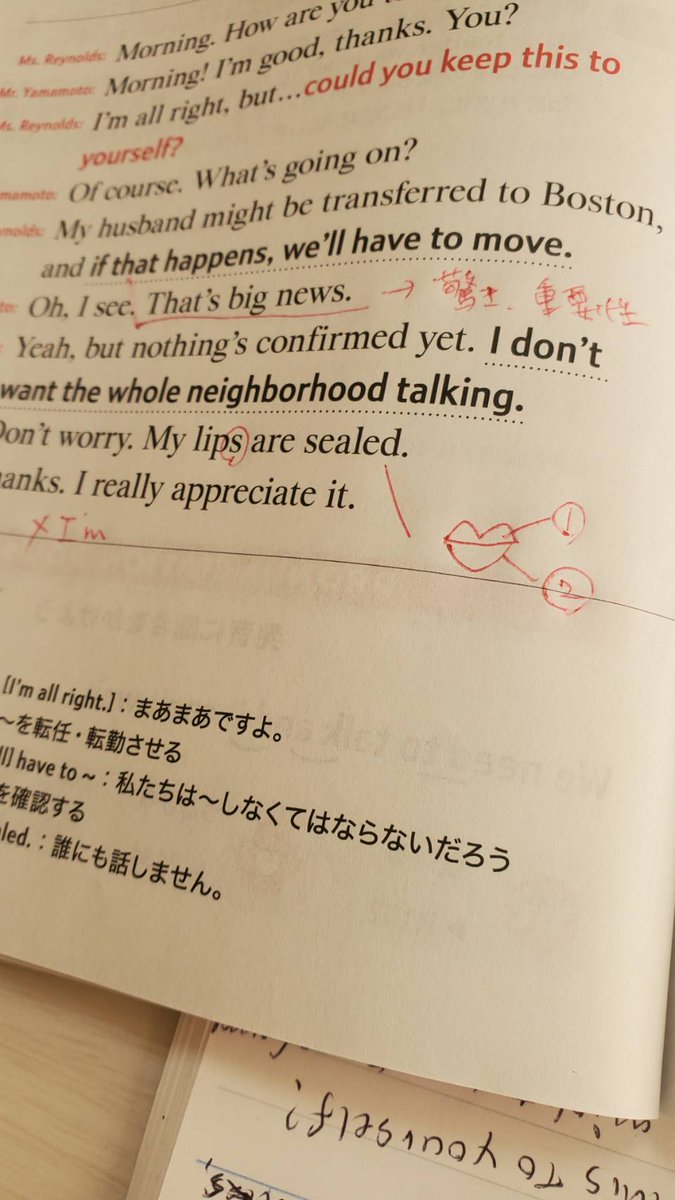 Ms. Reynolds: Morning. How are you
Mr. Yamamoto: Morning! I'm good, thanks. You?
Ms. Reynolds: I'm all right, but...could you keep this to
yourself?
mamoto: Of course. What's going on?
ynolds: My husband might be transferred to Boston,
and if that happens, we'll have to move.
to: Oh, I see. That's big news. → 驚き、重要性
Yeah, but nothing's confirmed yet. I don't
want the whole neighborhood talking.
Don't worry. My lips are sealed.
anks. I really appreciate it.
① 
× I'm
②
[I'm all right.]：まあまあですよ。
～を転任・転勤させる
ll] have to ~：私たちは～しなくてはならないだろう
を確認する
aled.：誰にも話しません。
this to yourself?